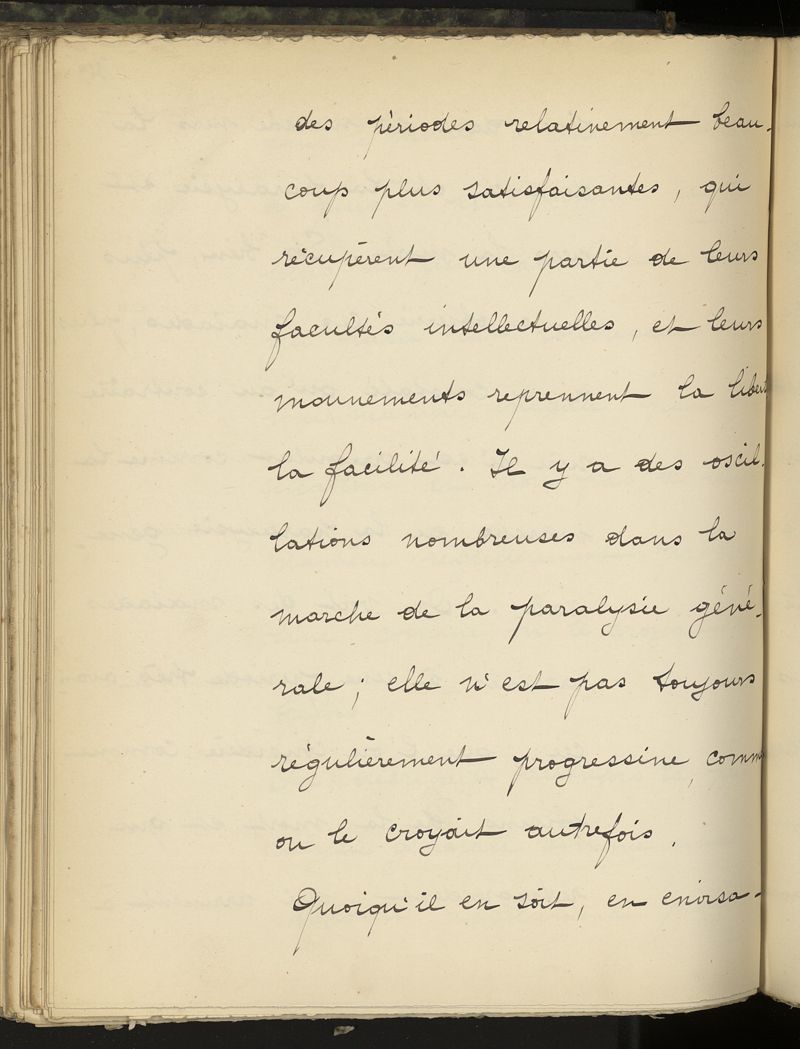 des périodes relativement beau-
coup plus satisfaisantes, qui
récupèrent une partie de leurs
facultés intellectuelles, et leurs
mouvements reprennent la liberté
la facilité. Il y a des oscil-
lations nombreuses dans la
marche de la paralysie géné-
rale ; elle n'est pas toujours
régulièrement progressive, comme
on le croyait autrefois.
Quoiqu'il en soit, en envisa-